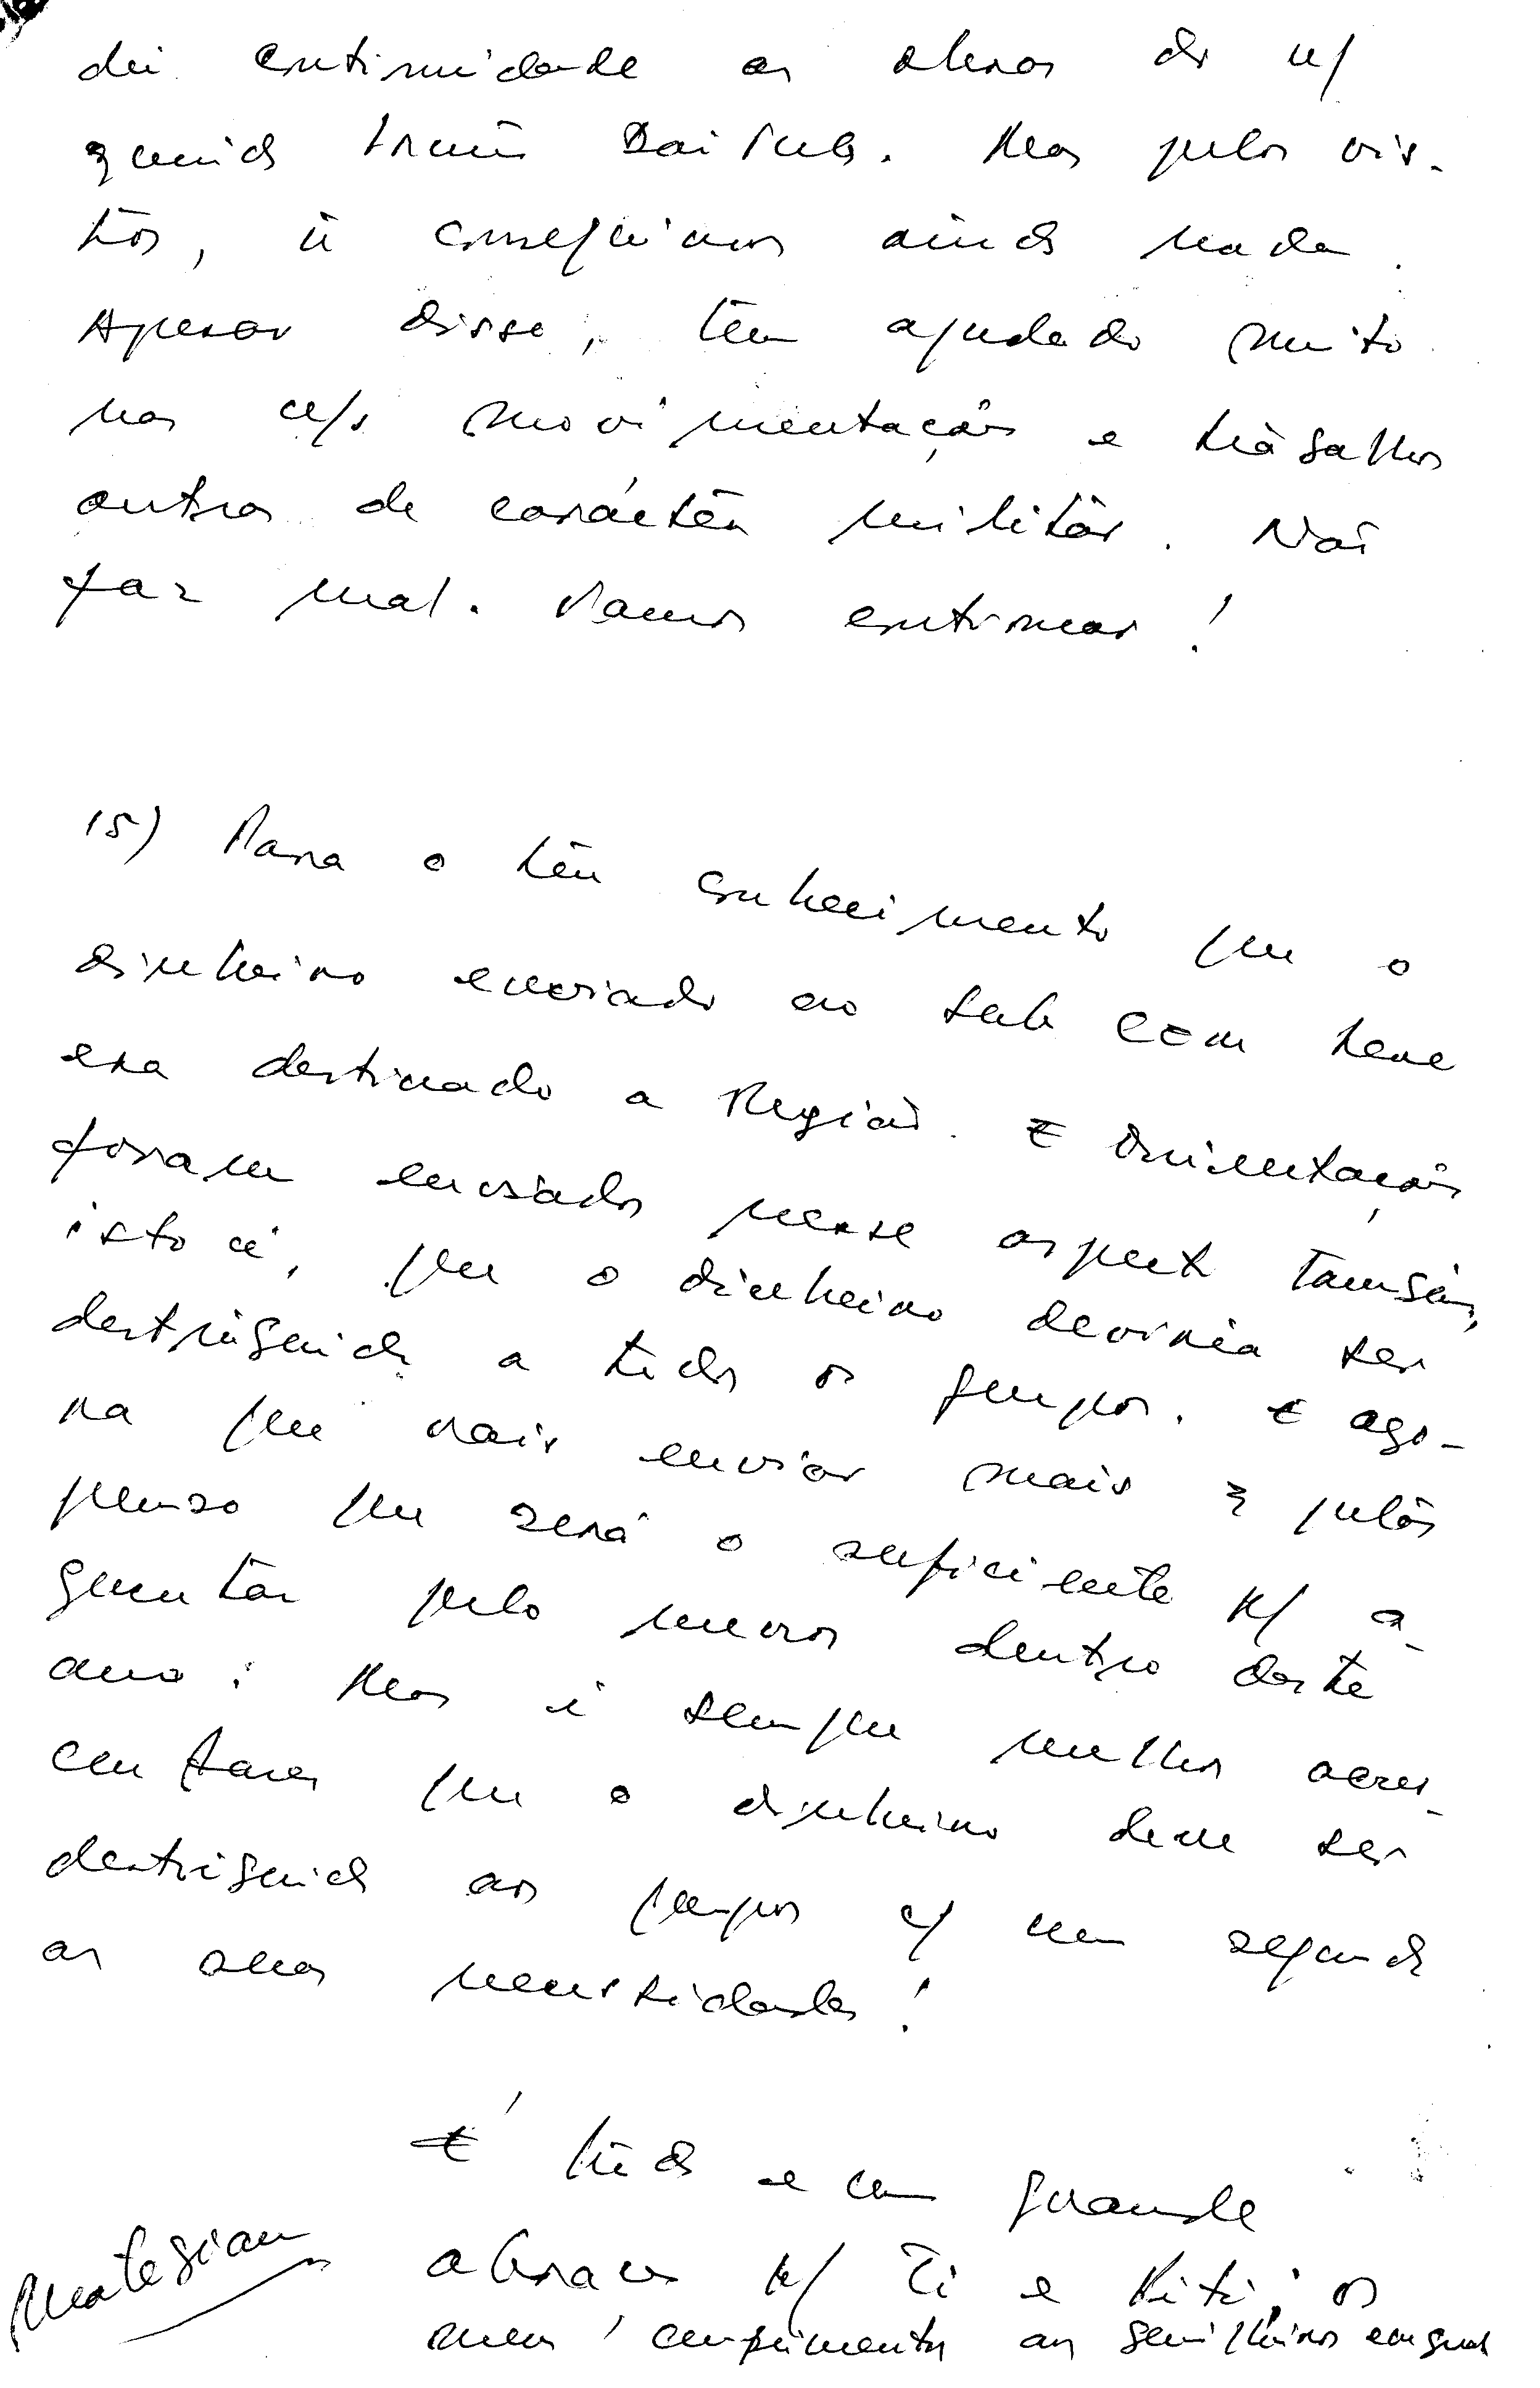 dei continuidade as obras do n/
querido Irmão Saikula. Mas pelos vis-
tos, ñ conseguimos ainda nada.
Apesar disso, tem ajudado muito
nas n/s movimentação e trabalhos
outros de carácter militar. Não
faz mal. Vamos continuar!
15) Para o teu conhecimento que o
dinheiro enviado ao Sub Com Leve
era destinado a Região. E orientação
foram enviados nesse aspecto também,
isto é, que o dinheiro deveria ser
destribuido a todos os grupos. E ago-
ra que vais enviar mais 3 pulos
penso que será o suficiente p/ a-
guentar pelo menos dentro deste
ano. Mas é sempre melhor acres-
centares que o dinheiro deve ser
destribuido aos grupos c/ um segundo
as suas necessidades!
É tudo e um grande
abraço p/ Ti e Kiti; os
meus cumprimentos aos guerrilheiros